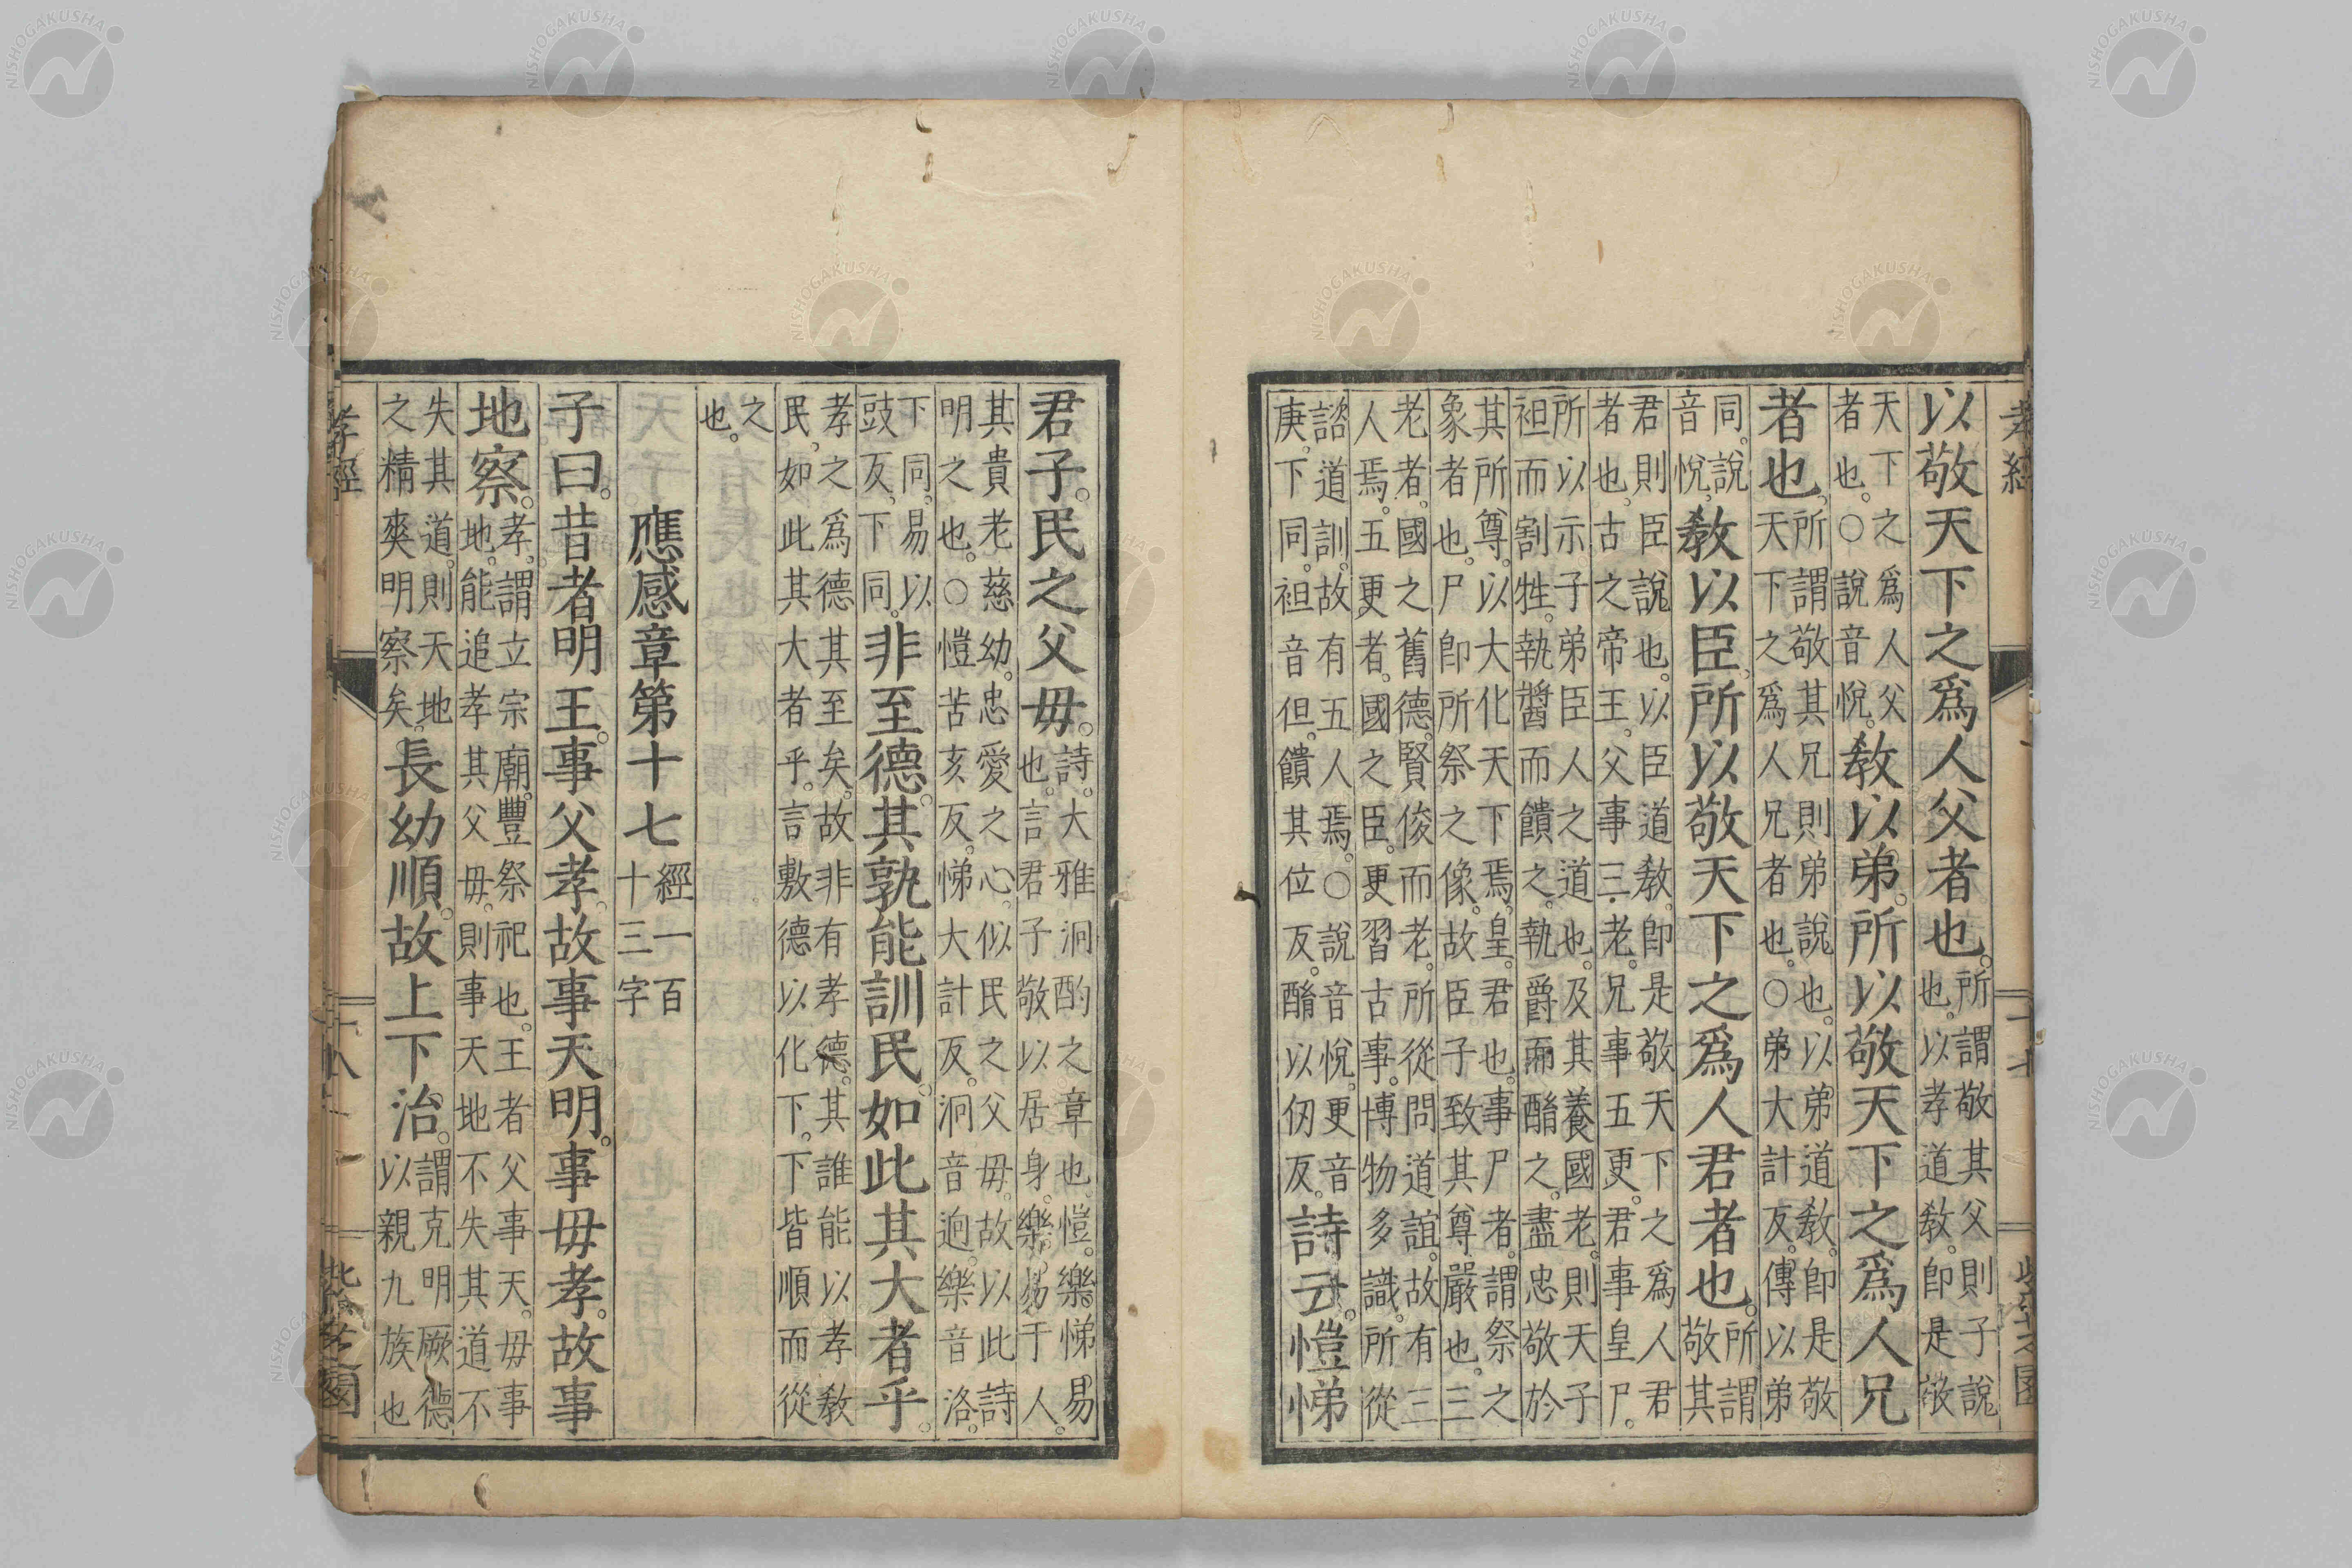 孝經 十七 紫芝園
以敬天下之爲人父者也。所謂敬其父則子說
也。以孝道敎。即是敬
天下之爲人父
者也。○說音悅。敎以弟。所以敬天下之爲人兄
者也。所謂敬其兄則弟說也。以弟道敎。即是敬
天下之爲人兄者也。○弟大計反。傳以弟
同。說
音悅。敎以臣。所以敬天下之爲人君者也。所謂
敬其
君則臣說也。以臣道敎。即是敬天下之爲人君
者也。古之帝王。父事三老。兄事五更。君事皇尸。
所以示子弟臣人之道也。及其養國老。則天子
袒而割牲。執醬而饋之。執爵而酳之。盡忠敬於
其所尊。以大化天下焉。皇。君也。事尸者。謂祭之
象者也。尸即所祭之像。故臣子致其尊嚴也。三
老者。國之舊德。賢俊而老。所從問道誼。故有三
人焉。五更者。國之臣。更習古事。博物多識。所從
諮道訓。故有五人焉。○說音悅。更音
庚。下同。袒音但。饋其位反。酳以仞反。詩云。愷悌
君子。民之父母。詩。大雅泂酌之章也。愷。樂。悌。易
也。言君子敬以居身。樂易于人。
其貴老慈幼。忠愛之心。似民之父母。故以此詩
明之也。○愷苦亥反。悌大計反。泂音迥。樂音洛。
下同。易以
豉反。下同。非至德。其孰能訓民。如此其大者乎。
孝之爲德其至矣。故非有孝德。其誰能以孝敎
民。如此其大者乎。言敷德以化下。下皆順而從
之
也。
應感章第十七 經一百
十三字
子曰。昔者明王。事父孝。故事天明。事母孝。故事
地察。孝。謂立宗廟。豐祭祀也。王者父事天。母事
地。能追孝其父母。則事天地不失其道。不
失其道。則天地
之精爽明察矣。長幼順。故上下治。謂克明厥德
以親九族也
孝經 十八 紫芝園
NISHOGAKUSHA